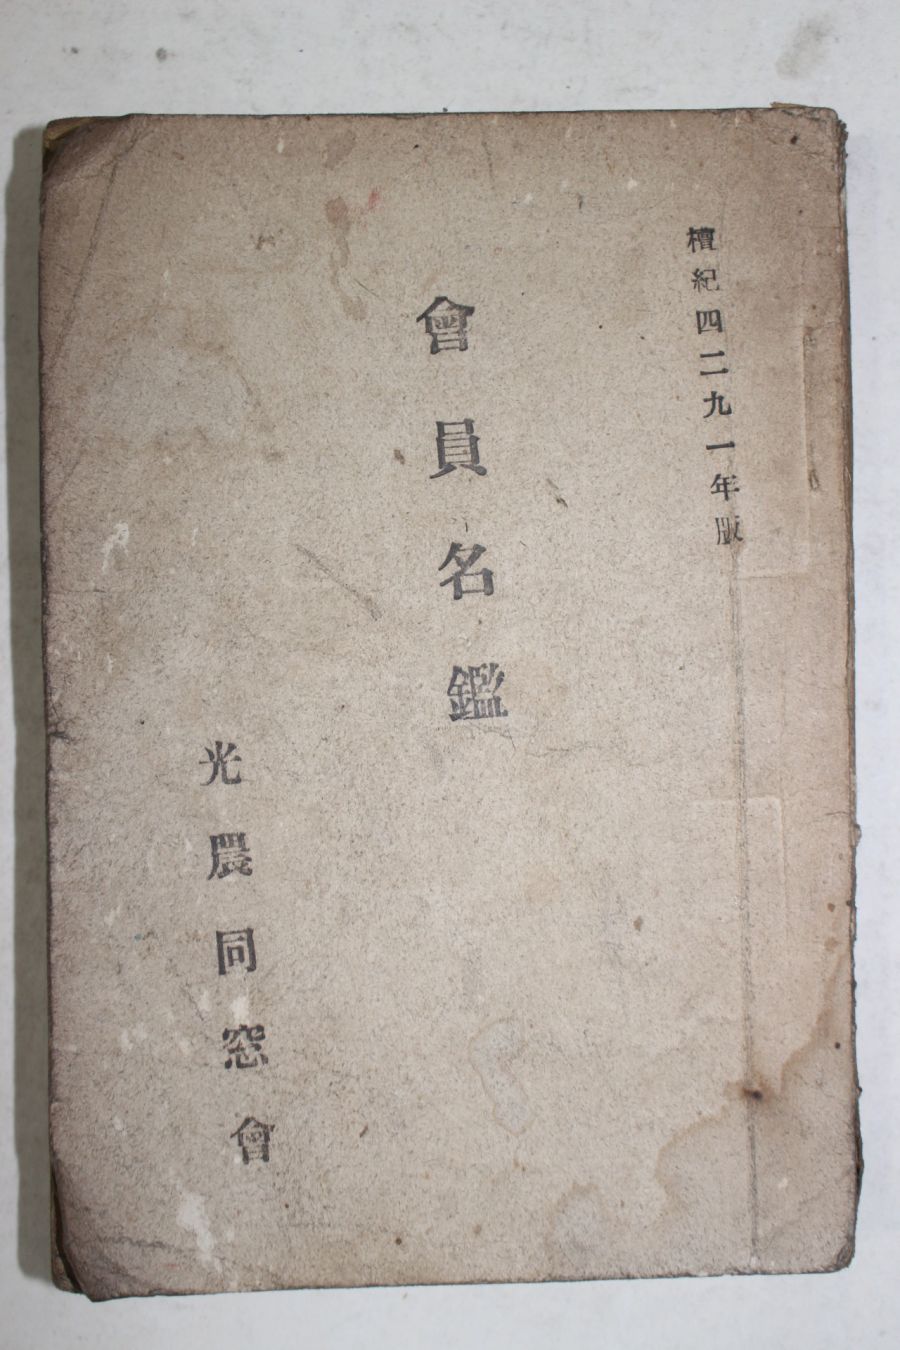 檀紀四二九一年版
會員名鑑
光農同窓會